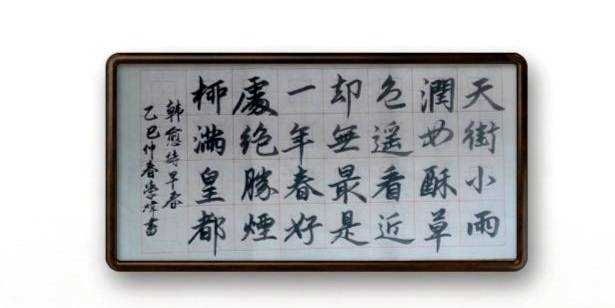 天街小雨
潤如酥草
色遥看近
却無最是
一年春好
處絶勝煙
柳滿皇都
韓愈詩早春
乙巳仲春学煒書